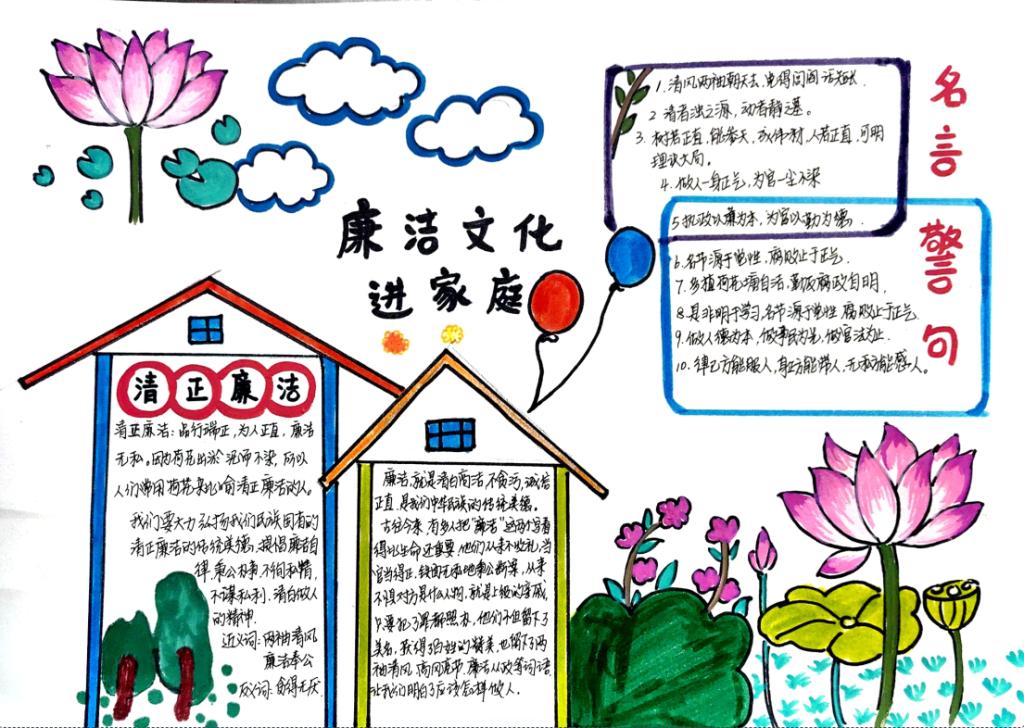 廉洁文化
进家庭
名言
警句
1. 清风两袖朝天去,免得闾阎话短长.
2 清者浊之源,动者静之基。
3. 树若正直,能参天,成伟材,人若正直,可明
理识大局。
4. 做人一身正气,为官一尘不染
5 执政以廉为本,为官以勤为德.
6. 名节源于党性,腐败止于正气.
7. 多植荷花塘自洁,勤反腐败政自明,
8. 是非明于学习,名节源于党性 腐败止于正气
9. 做人德为本,做事民为先,做官法为止.
10. 律己方能服人,身正方能带人,无私方能感人。
清正廉洁
清正廉洁:品行端正,为人正直,廉洁
无私。因为荷花出淤泥而不染,所以
人们常用荷花来比喻清正廉洁的人。
我们要大力弘扬我们民族固有的
清正廉洁的传统美德,提倡廉洁自
律,秉公办事,不徇私情,
不谋私利,清白做人
的精神.
近义词:两袖清风
廉洁奉公
反义词:贪得无厌.
廉洁,就是清白高洁,不贪污,诚信
正直,是我们中华民族的传统美德。
古往今来,有多人把"廉洁"这两个字看
得比生命还重要,他们从来不收礼,当
官当得正,铁面无私地秉公断案,从来
不惧对方是什么人物,就是上级的亲戚,
只要犯了罪都照办,他们不但留下了
美名,获得了百姓的赞美,也留下了两
袖清风,高风亮节,廉洁从政等词语.
让我们明白了应该怎样做人.